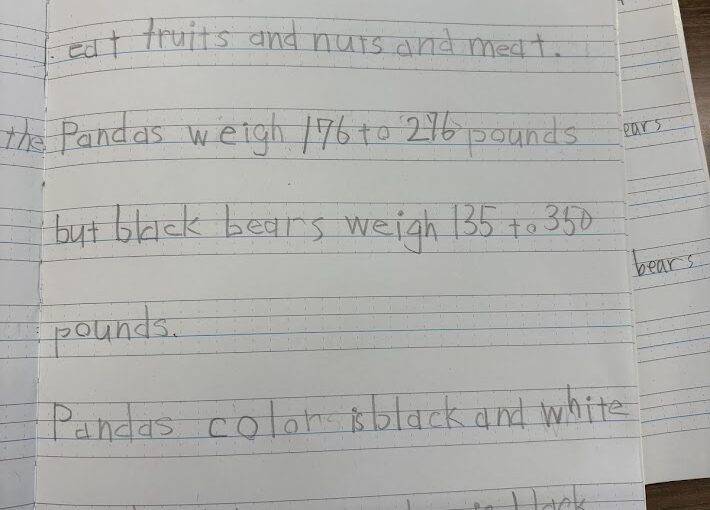 eat fruits and nuts and meat.
the Pandas weigh 176 to 276 pounds
ears
but black bears weigh 135 to 350
bears
pounds.
Pandas color is black and white